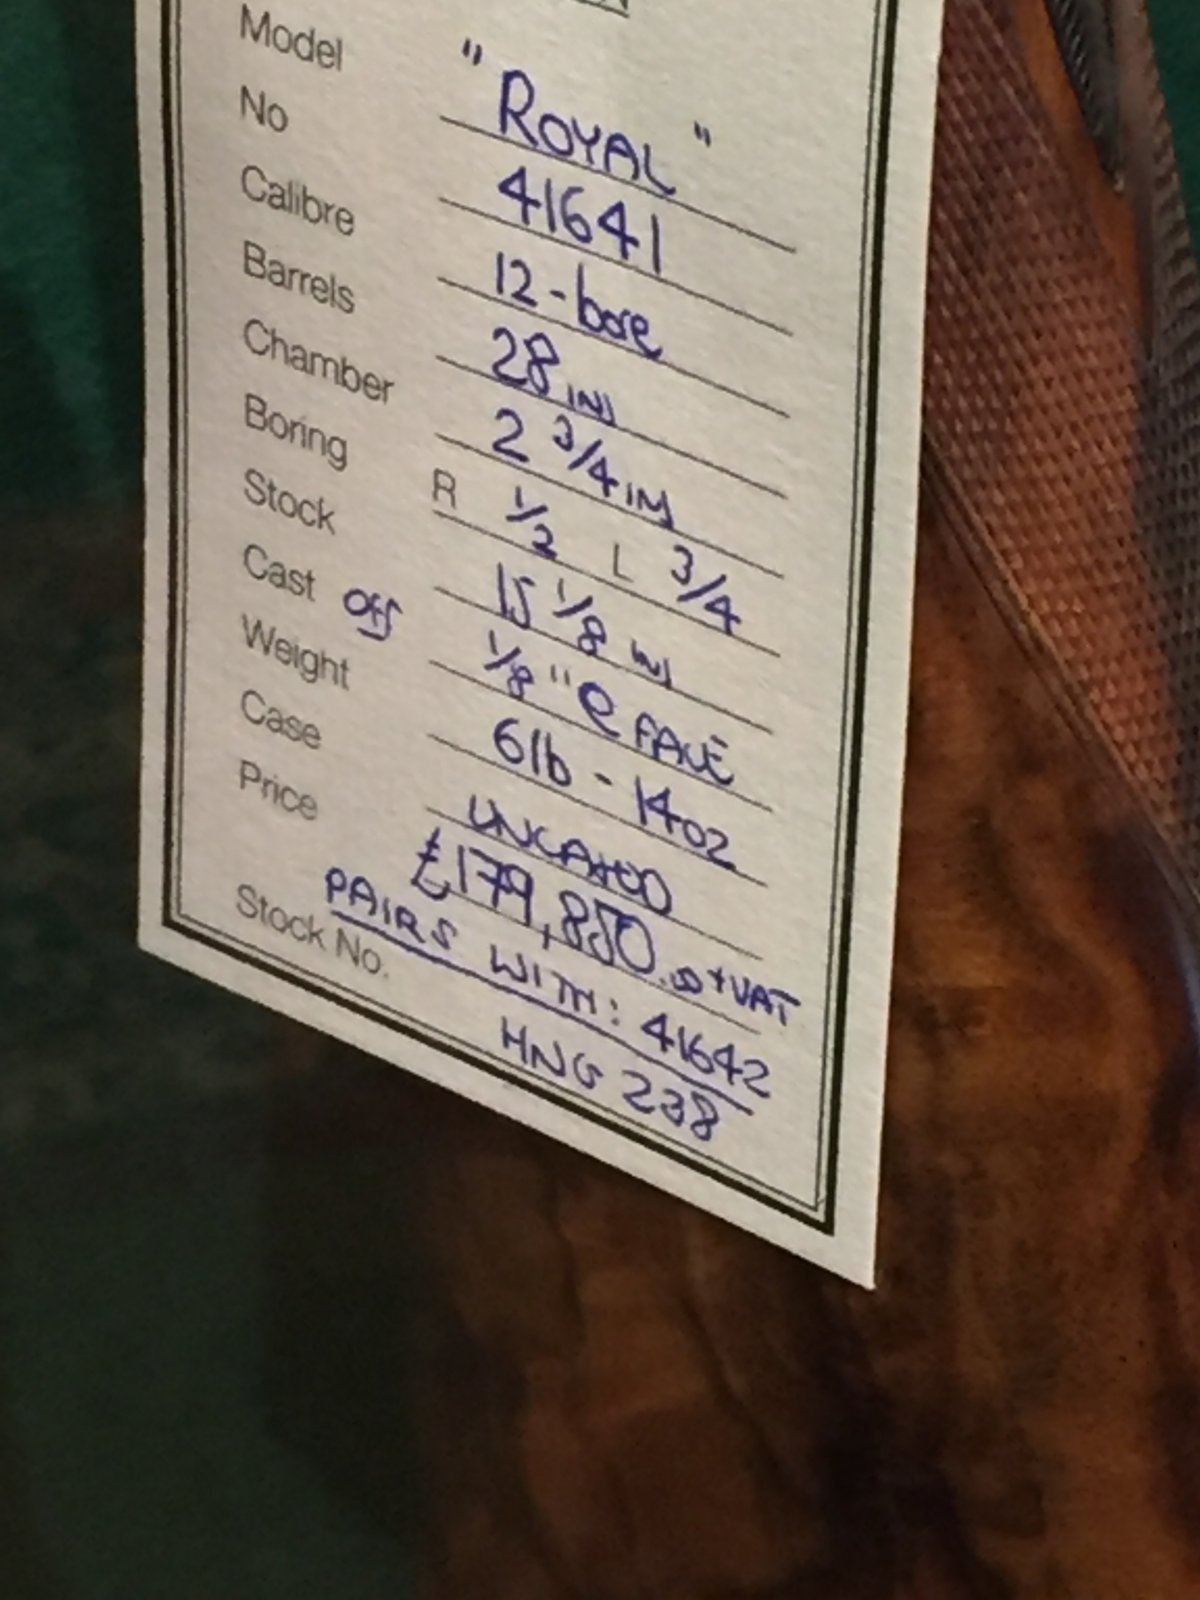 Model "ROYAL"
No 41641
Calibre 12-bore
Barrels 28 IN
Chamber 2 3/4 IN
Boring R 1/2 L 3/4
Stock 15 1/8 IN
Cast Off 1/8" @ FACE
Weight 6lb - 14oz
Case UNCASED
Price £179,850.00 +VAT
PAIRS WITH: 41642
Stock No. HNG 238